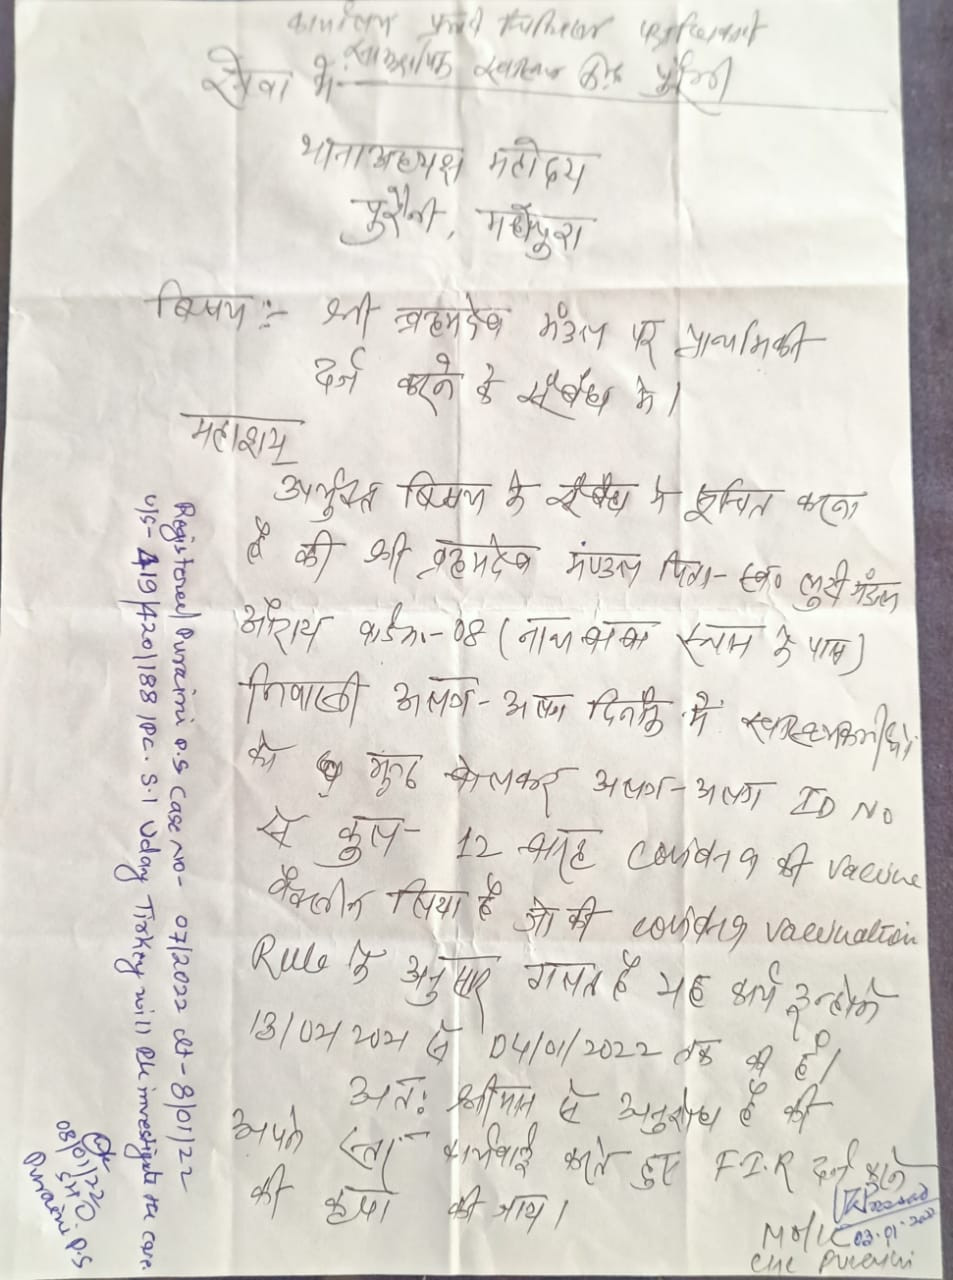 कार्यालय प्रभारी चिकित्सा पदाधिकारी
सामुदायिक स्वास्थ्य केन्द्र पुरैनी
सेवा में
थानाअध्यक्ष महोदय
पुरैनी, मधेपुरा
बिषय :- श्री ब्रह्मदेव मंडल पर प्राथमिकी
दर्ज करने के संबंध में।
महाशय
उपर्युक्त बिषय के संबंध में सूचित करना
है की श्री ब्रह्मदेव मण्डल पिता- स्व०
औराय वार्ड नं.-08 (के पास)
निवासी अलग-अलग दिनाँक में स्वास्थ्यकर्मियों
को झुठ बोलकर अलग-अलग ID NO
से कुल- 12 बारह covid19 की vaccine
वैक्सीन लिया है जो की covid19 vaccination
Rule के अनुसार गलत है यह कार्य इन्होंने
13/02/2021 से 04/01/2022 तक की है।
अतः श्रीमान से अनुरोध है की
अपने स्तर कार्यवाई करते हुए F.I.R दर्ज करने
की कृपा की जाय।
Prasad
03.01.202
MO/IC
CHC Puraini
Registered Puraini P.S Case No- 07/2022 dt-8/01/22
U/S- 419/420/188 IPC. S.I Uday Tirkey will Pl. investigate the case
08/01/22
SHO
Puraini P.S